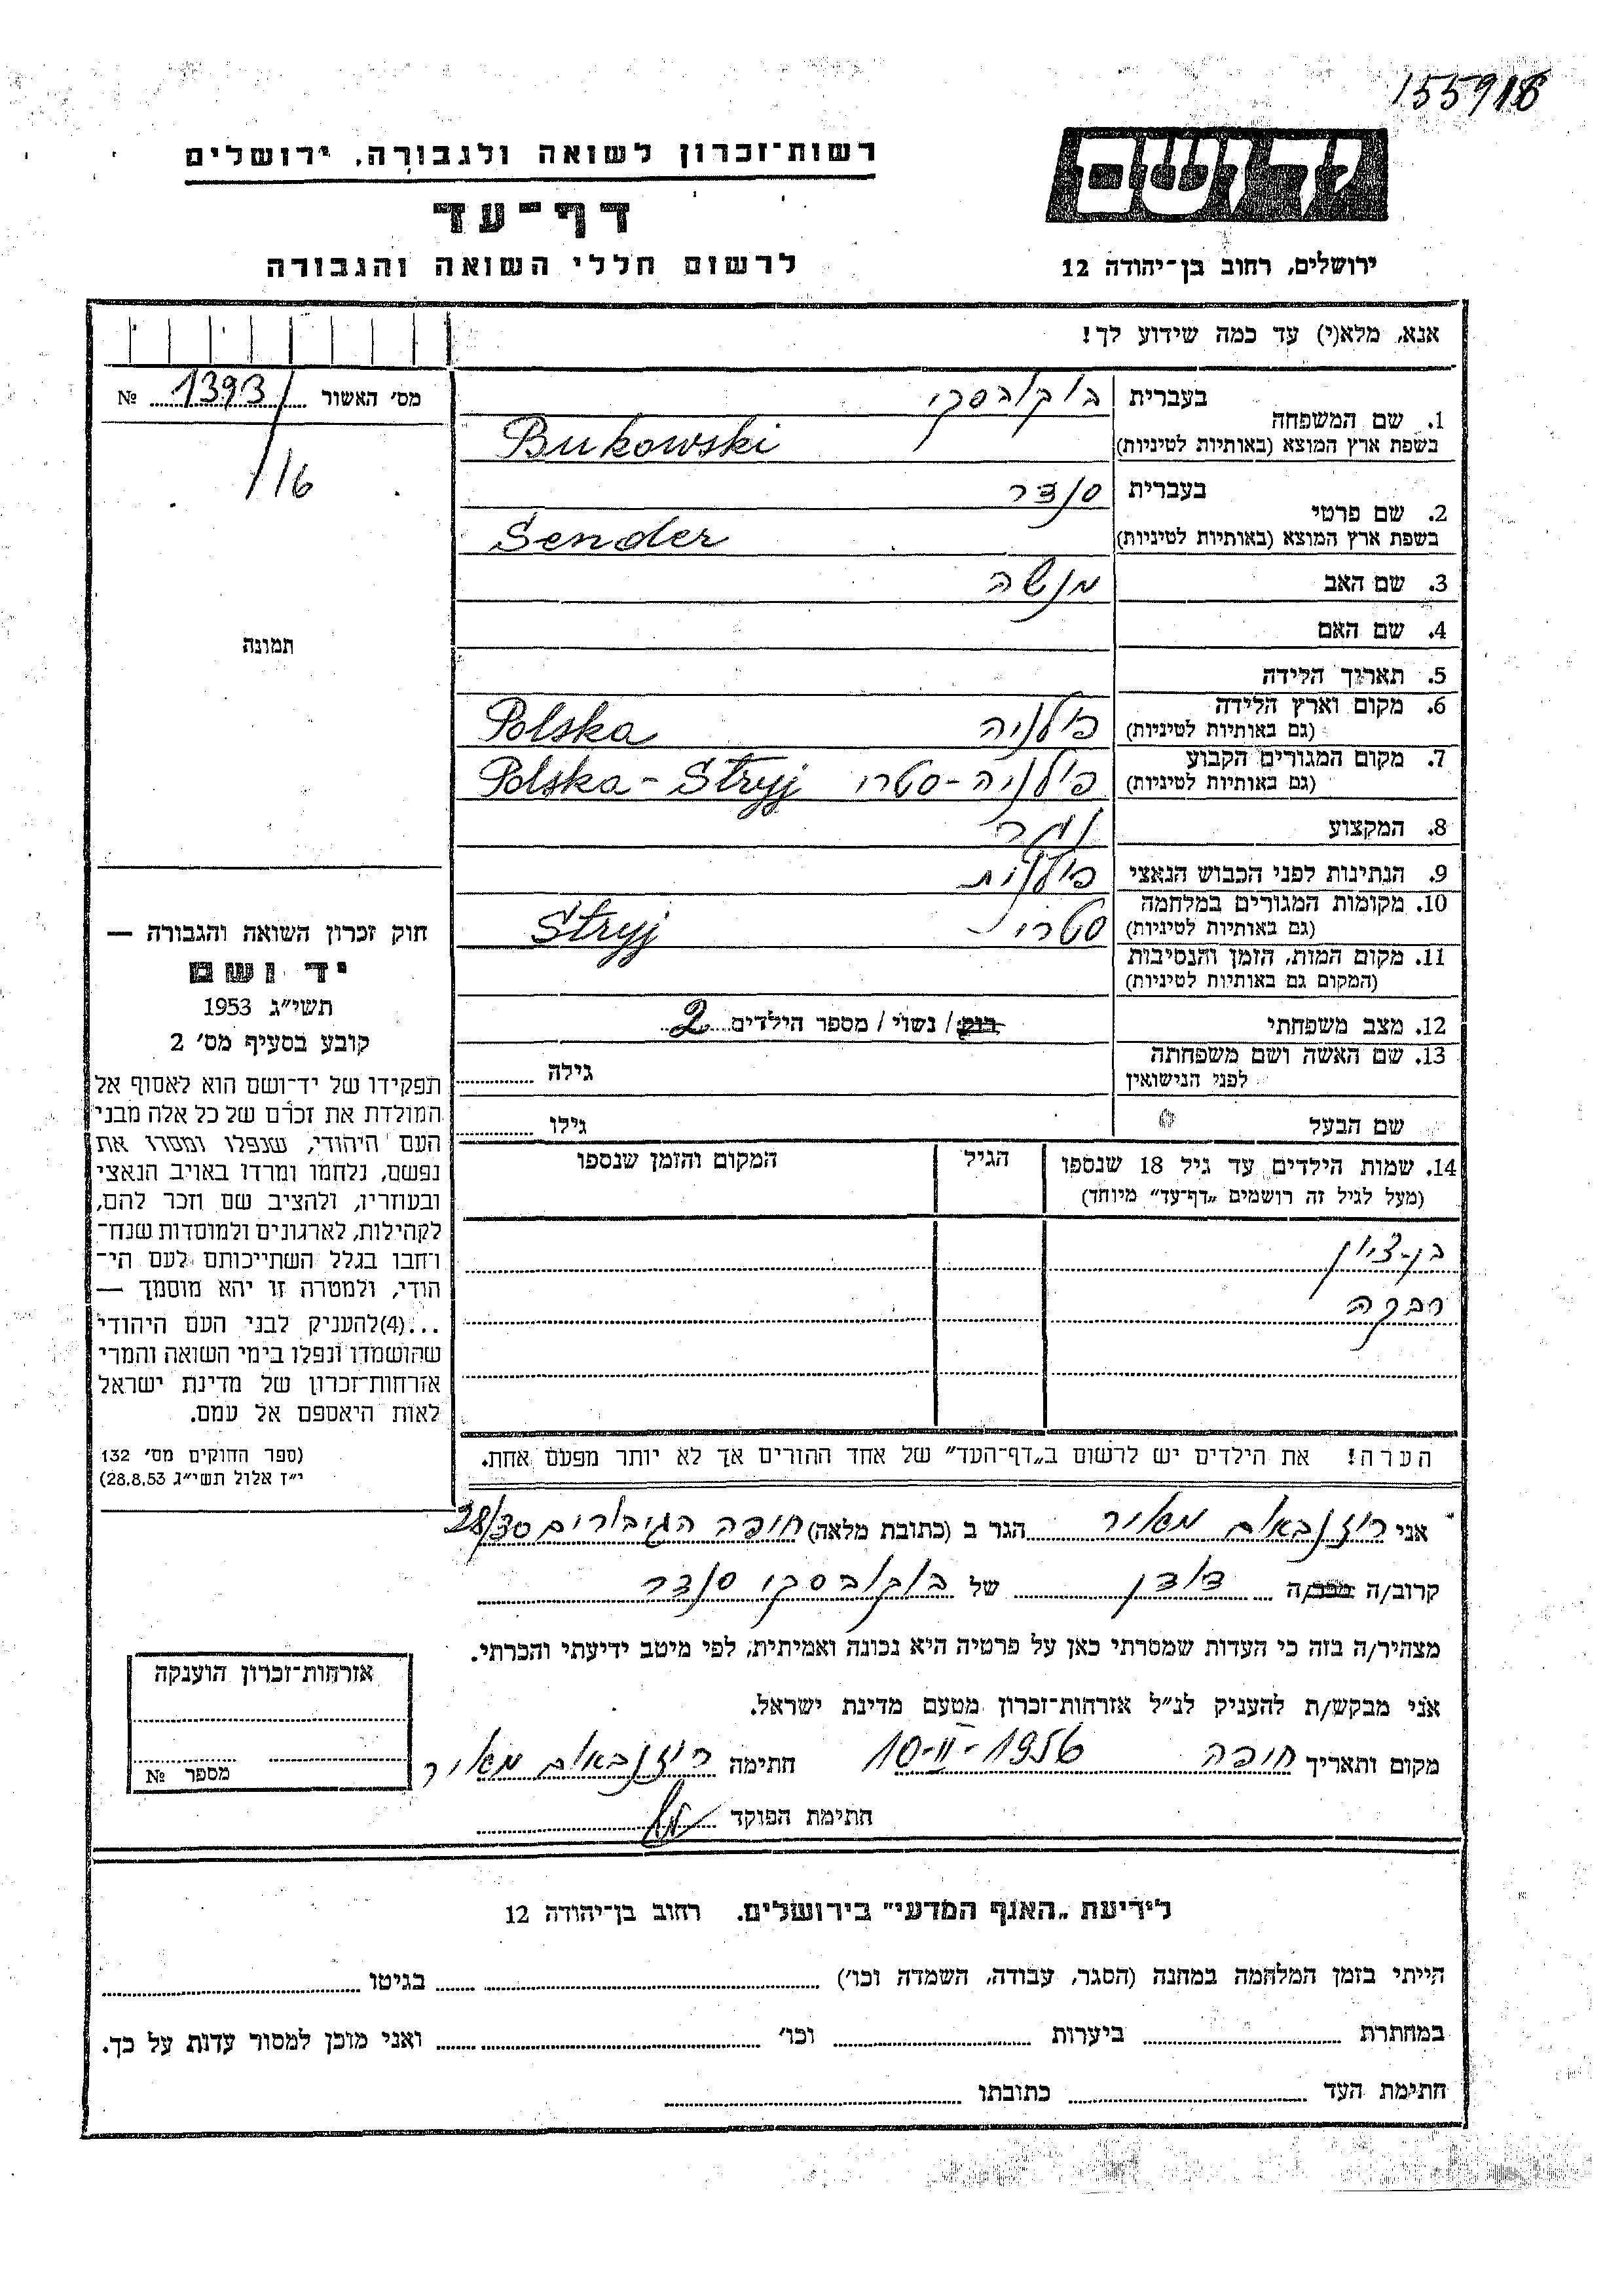 155918
יד ושם
רשות־זכרון לשואה ולגבורה, ירושלים
דף־עד
לרשום חללי השואה והגבורה
ירושלים, רחוב בן־יהודה 12
אנא, מלא(י) עד כמה שידוע לך!
מס' האשור 1393 №
116
תמונה
1. שם המשפחה בעברית בוקובסקי
בשפת ארץ המוצא (באותיות לטיניות) Bukowski
2. שם פרטי בעברית סנדר
בשפת ארץ המוצא (באותיות לטיניות) Sender
3. שם האב מנשה
4. שם האם
5. תאריך הלידה
6. מקום וארץ הלידה (גם באותיות לטיניות) פולניה Polska
7. מקום המגורים הקבוע (גם באותיות לטיניות) פולניה - סטרי Polska - Stryj
8. המקצוע
9. הנתינות לפני הכבוש הנאצי פולנית
10. מקומות המגורים במלחמה (גם באותיות לטיניות) סטרי Stryj
11. מקום המות, הזמן והנסיבות (המקום גם באותיות לטיניות)
12. מצב משפחתי רוק / נשוי / מספר הילדים 2
13. שם האשה ושם משפחתה לפני הנישואין גילה
שם הבעל גילו
14. שמות הילדים עד גיל 18 שנספו הגיל המקום והזמן שנספו
(מעל לגיל זה רושמים „דף־עד” מיוחד)
בן-ציון
רבקה
הערה! את הילדים יש לרשום ב„דף־העד” של אחד ההורים אך לא יותר מפעם אחת.
חוק זכרון השואה והגבורה —
יד ושם
תשי״ג 1953
קובע בסעיף מס' 2
תפקידו של יד־ושם הוא לאסוף אל
המולדת את זכרם של כל אלה מבני
העם היהודי, שנפלו ומסרו את
נפשם, נלחמו ומרדו באויב הנאצי
ובעוזריו, ולהציב שם וזכר להם,
לקהילות, לארגונים ולמוסדות שנח־
רחבו בגלל השתייכותם לעם הי־
הודי, ולמטרה זו יהא מוסמך —
...(4)להעניק לבני העם היהודי
שהושמדו ונפלו בימי השואה והמרי
אזרחות־זכרון של מדינת ישראל
לאות היאספם אל עמם.
(ספר החוקים מס' 132
י״ז אלול תשי״ג 28.8.53)
אני רוזנבאום מאיר הגר ב (כתובת מלאה) חיפה הגיבורים 28/30
קרוב/ה מכר/ה דודן של בוקובסקי סנדר
מצהיר/ה בזה כי העדות שמסרתי כאן על פרטיה היא נכונה ואמיתית, לפי מיטב ידיעתי והכרתי.
אני מבקש/ת להעניק לנ״ל אזרחות־זכרון מטעם מדינת ישראל.
מקום ותאריך חיפה 10-II-1956 חתימה רוזנבאום מאיר
חתימת הפוקד
אזרחות־זכרון הוענקה
מספר №
לידיעת „האגף המדעי” בירושלים, רחוב בן־יהודה 12
הייתי בזמן המלחמה במחנה (הסגר, עבודה, השמדה וכו') בגיטו
במחתרת ביערות וכו' ואני מוכן למסור עדות על כך.
חתימת העד כתובתו